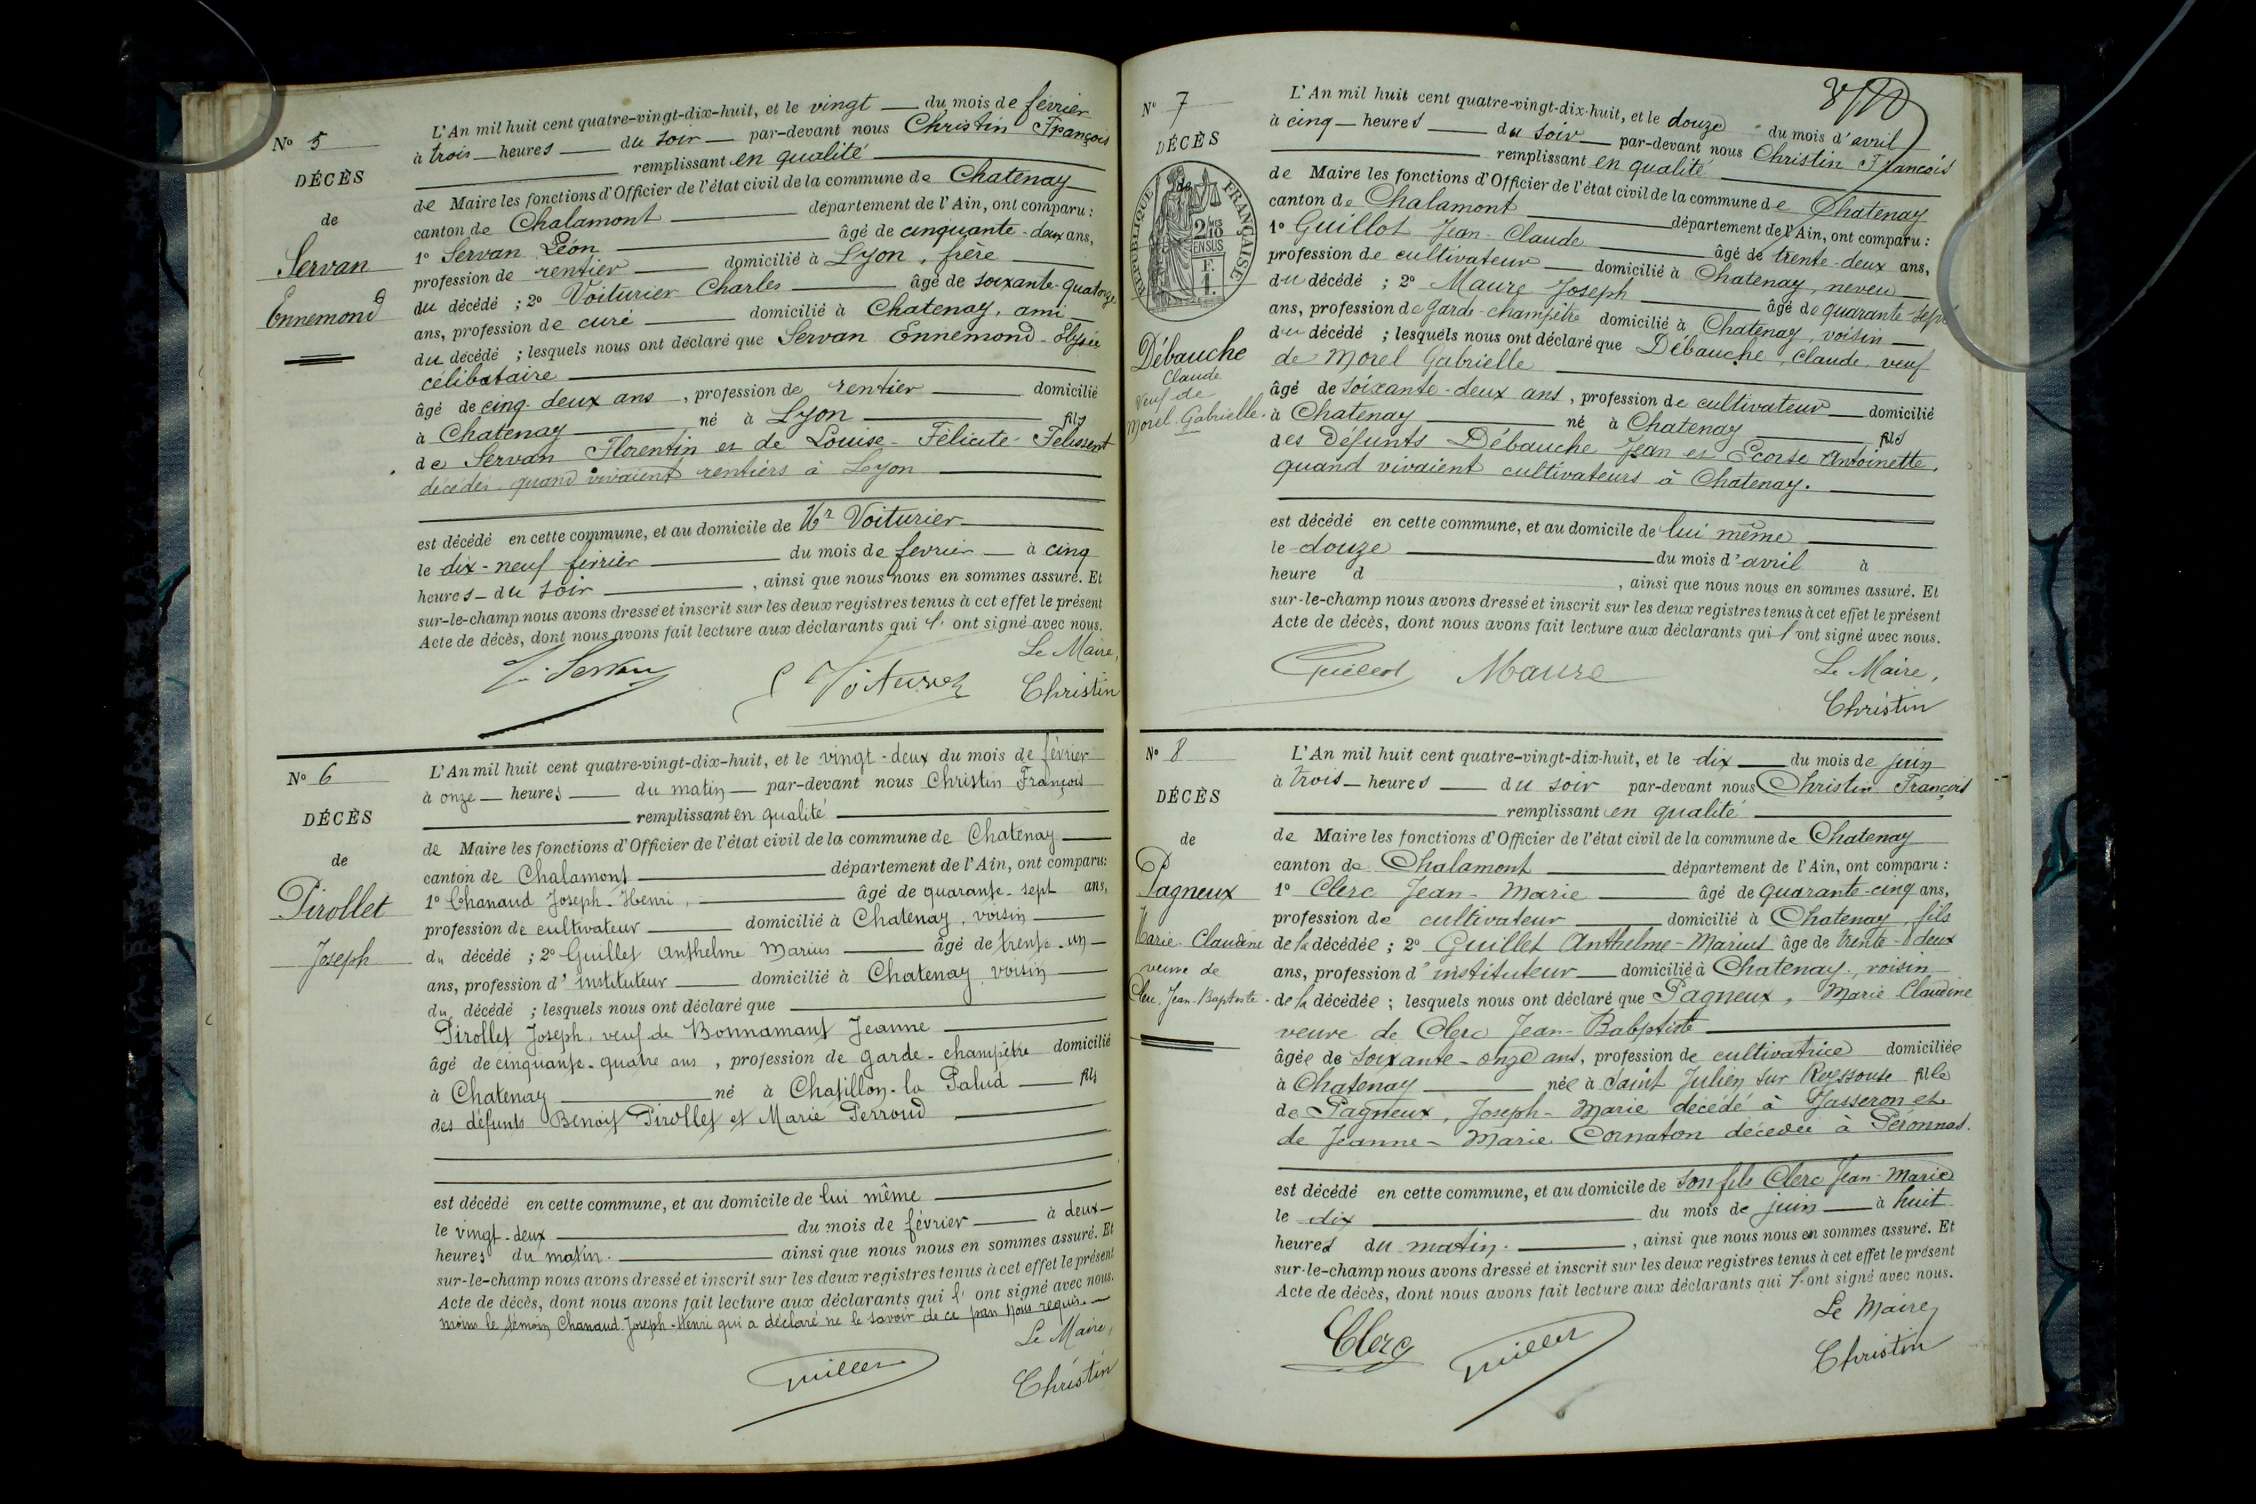 N° 5
DÉCÈS
de
Servan
Ennemond
L'An mil huit cent quatre-vingt-dix-huit, et le vingt du mois de février
à trois heures du soir par-devant nous Christin François
remplissant en qualité
de Maire les fonctions d'Officier de l'état civil de la commune de Chatenay
canton de Chalamont département de l'Ain, ont comparu :
1° Servan Léon âgé de cinquante-deux ans,
profession de rentier domicilié à Lyon, frère
du décédé ; 2° Voiturier Charles âgé de soixante-quatorze
ans, profession de curé domicilié à Chatenay, ami
du décédé ; lesquels nous ont déclaré que Servan Ennemond-Elysée
célibataire
âgé de cinq deux ans, profession de rentier domicilié
à Chatenay né à Lyon fils
de Servan Florentin et de Louise-Félicité-Felissent
décédés quand vivaient rentiers à Lyon
est décédé en cette commune, et au domicile de Mr Voiturier
le dix-neuf février du mois de février à cinq
heures du soir, ainsi que nous nous en sommes assuré. Et
sur-le-champ nous avons dressé et inscrit sur les deux registres tenus à cet effet le présent
Acte de décès, dont nous avons fait lecture aux déclarants qui l' ont signé avec nous.
Le Maire,
Servan Voiturier Christin
N° 6
DÉCÈS
de
Pirollet
Joseph
L'An mil huit cent quatre-vingt-dix-huit, et le vingt-deux du mois de février
à onze heures du matin par-devant nous Christin François
remplissant en qualité
de Maire les fonctions d'Officier de l'état civil de la commune de Chatenay
canton de Chalamont département de l'Ain, ont comparu:
1° Chanaud Joseph-Henri, âgé de quarante-sept ans,
profession de cultivateur domicilié à Chatenay, voisin
du décédé ; 2° Guillet Anthelme Marius âgé de trente-un
ans, profession d'instituteur domicilié à Chatenay voisin
du décédé ; lesquels nous ont déclaré que
Pirollet Joseph, veuf de Bonnamant Jeanne
âgé de cinquante-quatre ans, profession de garde-champêtre domicilié
à Chatenay né à Chatillon-la Palud fils
des défunts Benoit Pirollet et Marie Perroud
est décédé en cette commune, et au domicile de lui même
le vingt-deux du mois de février à deux
heures du matin. ainsi que nous nous en sommes assuré. Et
sur-le-champ nous avons dressé et inscrit sur les deux registres tenus à cet effet le présent
Acte de décès, dont nous avons fait lecture aux déclarants qui l' ont signé avec nous.
moins le témoin Chanaud Joseph-Henri qui a déclaré ne le savoir de ce par nous requis.
Le Maire,
Guillet Christin
N° 7
DÉCÈS
de
RÉPUBLIQUE FRANÇAISE
2/10
EN SUS
F.
1.
Débauche
Claude
veuf de
Morel Gabrielle.
L'An mil huit cent quatre-vingt-dix-huit, et le douze du mois d'avril
à cinq heures du soir par-devant nous Christin François
remplissant en qualité
de Maire les fonctions d'Officier de l'état civil de la commune de Chatenay
canton de Chalamont département de l'Ain, ont comparu :
1° Guillot Jean-Claude âgé de trente-deux ans,
profession de cultivateur domicilié à Chatenay, neveu
du décédé ; 2° Maure Joseph âgé de quarante-sept
ans, profession de garde-champêtre domicilié à Chatenay, voisin
du décédé ; lesquels nous ont déclaré que Débauche, Claude, veuf
de Morel Gabrielle
âgé de soixante-deux ans, profession de cultivateur domicilié
à Chatenay né à Chatenay fils
des défunts Débauche Jean et Ecorse Antoinette,
quand vivaient cultivateurs à Chatenay.
est décédé en cette commune, et au domicile de lui même
le douze du mois d'avril à
heure d , ainsi que nous nous en sommes assuré. Et
sur-le-champ nous avons dressé et inscrit sur les deux registres tenus à cet effet le présent
Acte de décès, dont nous avons fait lecture aux déclarants qui l'ont signé avec nous.
Guillot Maure Le Maire,
Christin
N° 8
DÉCÈS
de
Pagneux
Marie-Claudine
veuve de
Clerc Jean-Baptiste
L'An mil huit cent quatre-vingt-dix-huit, et le dix du mois de juin
à trois heures du soir par-devant nous Christin François
remplissant en qualité
de Maire les fonctions d'Officier de l'état civil de la commune de Chatenay
canton de Chalamont département de l'Ain, ont comparu :
1° Clerc Jean-Marie âgé de quarante-cinq ans,
profession de cultivateur domicilié à Chatenay, fils
de la décédée ; 2° Guillet Anthelme-Marius âge de trente-deux
ans, profession d'instituteur domicilié à Chatenay, voisin
de la décédée ; lesquels nous ont déclaré que Pagneux, Marie Claudine
veuve de Clerc Jean-Babptiste
âgée de soixante-onze ans, profession de cultivatrice domiciliée
à Chatenay née à Saint Julien sur Reyssouse fille
de Pagneux, Joseph-Marie décédé à Jasseron et
de Jeanne-Marie Cornaton décédée à Péronnas.
est décédé en cette commune, et au domicile de son fils Clerc Jean-Marie
le dix du mois de juin à huit
heures du matin. , ainsi que nous nous en sommes assuré. Et
sur-le-champ nous avons dressé et inscrit sur les deux registres tenus à cet effet le présent
Acte de décès, dont nous avons fait lecture aux déclarants qui l'ont signé avec nous.
Le Maire,
Clerc Guillet Christin